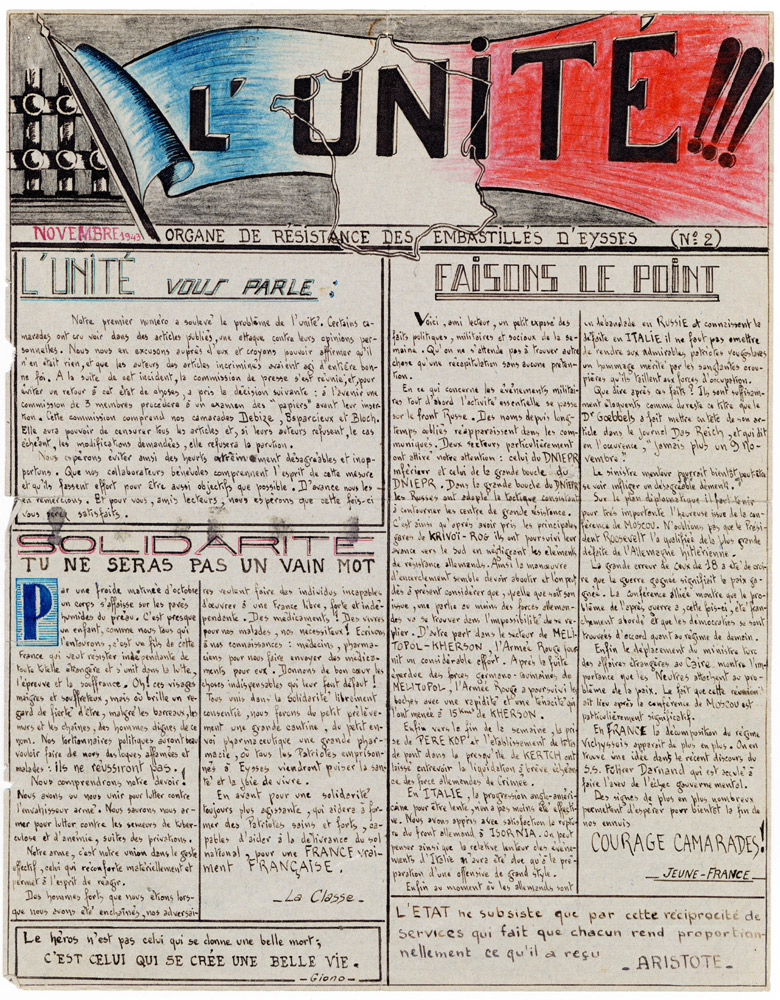 L'UNITÉ!!!
NOVEMBRE 1943 ORGANE DE RÉSISTANCE DES EMBASTILLÉS D'EYSSES (No 2)
L'UNITÉ VOUS PARLE :
Notre premier numéro a soulevé le problème de l'unité. Certains ca-
marades ont cru voir dans des articles publiés, une attaque contre leurs opinions per-
sonnelles. Nous nous en excusons auprès d'eux et croyons pouvoir affirmer qu'il
n'en était rien, et que les auteurs des articles incriminés avaient agi d'entière bon-
ne foi. A la suite de cet incident, la commission de presse s'est réunie, et, pour
éviter un retour à cet état de choses, a pris la décision suivante : à l'avenir une
commission de 3 membres procédera à un examen des "papiers" avant leur inser-
tion. Cette commission comprend nos camarades Debize, Esparcieux et Bloch.
Elle aura pouvoir de censurer tous les articles et, si leurs auteurs refusent, le cas
échéant, les modifications demandées, elle refusera la parution.
Nous espérons éviter ainsi des heurts extrêmement désagréables et inop-
portuns. Que nos collaborateurs bénévoles comprennent l'esprit de cette mesure
et qu'ils fassent effort pour être aussi objectifs que possible. D'avance nous les
en remercions. Et pour vous, amis lecteurs, nous espérons que cette fois-ci
vous serez satisfaits.
SOLIDARITÉ
TU NE SERAS PAS UN VAIN MOT
Par une froide matinée d'octobre
un corps s'affaisse sur les pavés
humides du préau. C'est presque
un enfant, comme nous tous qui
l'entourons, c'est un fils de cette
France qui veut rester indépendante de
toute tutelle étrangère et s'unit dans la lutte,
l'épreuve et la souffrance. Oh! ces visages
maigres et souffreteux, mais où brille un re-
gard de fierté d'être, malgré les barreaux, les
murs et les chaînes, des hommes dignes de ce
nom. Nos tortionnaires politiques auront beau
vouloir faire de nous des loques affamées et
malades : ils ne réussiront pas !
Nous comprendrons notre devoir !
Nous avons su nous unir pour lutter contre
l'envahisseur armé. Nous saurons nous ar-
mer pour lutter contre les semeurs de tuber-
culose et d'anémie, suites des privations.
Notre arme, c'est notre union dans le geste
effectif, celui qui réconforte matériellement et
permet à l'esprit de réagir.
Des hommes forts que nous étions lors-
que nous avons été enchaînés, nos adversai-
res veulent faire des individus incapables
d'œuvrer à une France libre, forte et indé-
pendante. Des médicaments ! Des vivres
pour nos malades, nos nécessiteux ! Ecrivons
à nos connaissances : médecins, pharma-
ciens pour nous faire envoyer des médica-
ments pour eux. Donnons de bon cœur les
choses indispensables qui leur font défaut !
Tous unis dans la Solidarité librement
consentie, nous ferons du petit prélève-
ment une grande cantine, du petit en-
voi pharmaceutique une grande phar-
macie, où tous les Patriotes emprison-
nés à Eysses viendront puiser la san-
té et la joie de vivre.
En avant pour une solidarité
toujours plus agissante, qui aidera à for-
mer des Patriotes sains et forts, ca-
pables d'aider à la délivrance du sol
national, pour une FRANCE vrai-
ment FRANÇAISE.
- La Classe -
Le héros n'est pas celui qui se donne une belle mort ;
C'EST CELUI QUI SE CRÉE UNE BELLE VIE.
- Giono -
FAISONS LE POINT
Voici, ami lecteur, un petit exposé des
faits politiques, militaires et sociaux de la se-
maine. Qu'on ne s'attende pas à trouver autre
chose qu'une récapitulation sans aucune préten-
tion.
En ce qui concerne les événements militai-
res tout d'abord l'activité essentielle se passe
sur le front Russe. Des noms depuis long-
temps oubliés réapparaissent dans les com-
muniqués. Deux secteurs particulièrement
ont attiré notre attention : celui du DNIEPR
inférieur et celui de la grande boucle du
DNIEPR. Dans la grande boucle du DNIEPR
les Russes ont adopté la tactique consistant
à contourner les centres de grande résistance.
C'est ainsi qu'après avoir pris les principales
gares de KRIVOÏ-ROG ils ont poursuivi leur
avance vers le Sud en négligeant les éléments
de résistance allemands. Ainsi la manœuvre
d'encerclement semble devoir aboutir et l'on peut
dès à présent considérer que, quelle que soit son
issue, une partie au moins des forces alleman-
des va se trouver dans l'impossibilité de se re-
plier. D'autre part dans le secteur de MELI-
TOPOL-KHERSON, l'Armée Rouge four-
nit un considérable effort. Après la fuite
éperdue des forces germano-roumaines de
MELITOPOL, l'Armée Rouge a poursuivi les
boches avec une rapidité et une ténacité qui
l'ont menée à 15 Kms de KHERSON.
Enfin vers la fin de la semaine, la pri-
se de PEREKOP et l'établissement de têtes
de pont dans la presqu'île de KERTCH ont
laissé entrevoir la liquidation à brève échéan-
ce des force allemandes de Crimée.
En ITALIE, la progression anglo-améri-
caine pour être lente, n'en a pas moins été effecti-
ve. Nous avons appris avec satisfaction la reprise
du front allemand à ISORNIA. On peut
penser ainsi que la relative lenteur des évène-
ments d'Italie n'aura été due qu'à la pré-
paration d'une offensive de grand style.
Enfin au moment où les allemands sont
en débandade en RUSSIE et connaissent la
défaite en ITALIE il ne faut pas omettre
de rendre aux admirables patriotes yougoslaves
un hommage mérité par les sanglantes crou-
pières qu'ils taillent aux forces d'occupation.
Que dire après ces faits ? Ils sont suffisam-
ment éloquents comme du reste ce titre que le
Dr Goebbels a fait mettre en tête de son ar-
ticle dans le journal Das Reich, et qui dit
en l'occurence, "jamais plus un 9 No-
vembre".
Le sinistre menteur pourrait bientôt peut-être
se voir infliger un désagréable démenti.
Sur le plan diplomatique il faut tenir
pour très importante l'heureuse issue de la con-
férence de MOSCOU. N'oublions pas que le Prési-
dent ROOSEVELT l'a qualifiée de la plus grande
défaite de l'Allemagne hitlérienne.
La grande erreur de ceux de 18 a été de croi-
re que la guerre gagnée signifiait la paix ga-
gnée. La conférence alliée montre que le pro-
blème de l'après guerre a, cette fois-ci, été fran-
chement abordé et que les démocraties se sont
trouvées d'accord quant au régime de demain.
Enfin le déplacement du ministre turc
des affaires étrangères au Caire, montre l'im-
portance que les Neutres attachent au pro-
blème de la paix. Le fait que cette réunion
ait lieu après la conférence de MOSCOU est
particulièrement significatif.
En FRANCE la décomposition du régime
Vichyssois apparaît de plus en plus. On en
trouve une idée dans le récent discours du
S.S. Führer Darnand qui est acculé à
faire l'aveu de l'échec gouvernemental.
Des signes de plus en plus nombreux
permettent d'espérer pour bientôt la fin de
nos ennuis
COURAGE CAMARADES!
- JEUNE-FRANCE -
L'ETAT ne subsiste que par cette réciprocité de
services qui fait que chacun rend proportion-
nellement ce qu'il a reçu
- ARISTOTE -